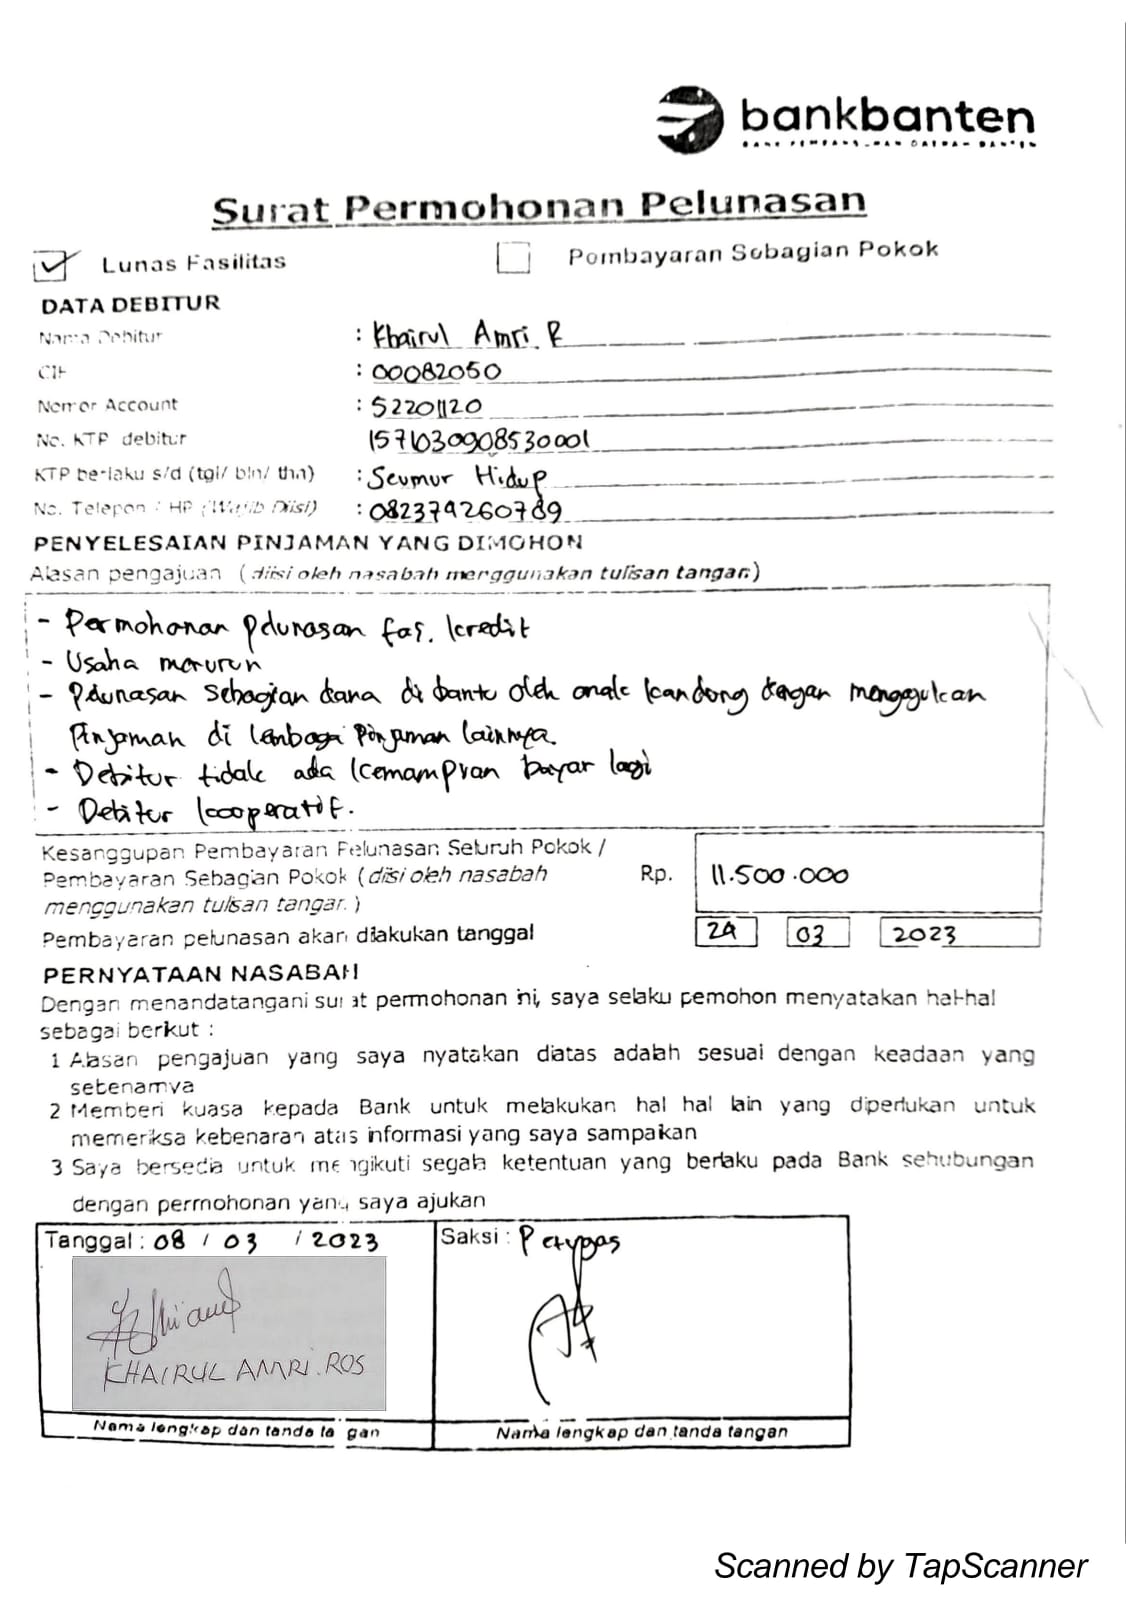 bankbanten
BANK PEMBANGUNAN DAERAH BANTEN
Surat Permohonan Pelunasan
Lunas Fasilitas
Pembayaran Sebagian Pokok
DATA DEBITUR
Nama Debitur : Khairul Amri. R
CIF : 00082050
Nomor Account : 52201120
No. KTP debitur 1571030908530001
KTP berlaku s/d (tgl/ bln/ thn) : Seumur Hidup
No. Telepon / HP (Wajib Diisi) : 082379260789
PENYELESAIAN PINJAMAN YANG DIMOHON
Alasan pengajuan (diisi oleh nasabah menggunakan tulisan tangan)
- Permohonan pelunasan fas. kredit
- Usaha menurun
- Pelunasan sebagian dana di bantu oleh anak kandong dengan mengajukan
Pinjaman di lembaga Pinjaman lainnya.
- Debitur tidak ada kemampuan bayar lagi
- Debitur kooperatif.
Kesanggupan Pembayaran Pelunasan Seluruh Pokok /
Pembayaran Sebagian Pokok (diisi oleh nasabah
menggunakan tulisan tangan)
Rp. 11.500.000
Pembayaran pelunasan akan dilakukan tanggal 24 03 2023
PERNYATAAN NASABAH
Dengan menandatangani surat permohonan ini, saya selaku pemohon menyatakan hal-hal
sebagai berikut :
1 Alasan pengajuan yang saya nyatakan diatas adalah sesuai dengan keadaan yang
sebenarnya
2 Memberi kuasa kepada Bank untuk melakukan hal hal lain yang diperlukan untuk
memeriksa kebenaran atas informasi yang saya sampaikan
3 Saya bersedia untuk mengikuti segala ketentuan yang berlaku pada Bank sehubungan
dengan permohonan yang saya ajukan
Tanggal : 08 / 03 / 2023
Saksi : Petugas
KHAIRUL AMRI. ROS
Nama lengkap dan tanda tangan
Nama lengkap dan tanda tangan
Scanned by TapScanner